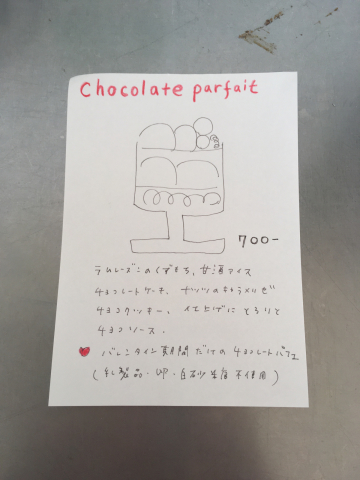 Chocolate parfait
700-
ラムレーズンのくずもち、甘酒アイス
チョコレートケーキ、ナッツのキャラメリゼ
チョコクッキー、仕上げにとろりと
チョコソース。
バレンタイン期間だけのチョコレートパフェ
(乳製品・卵・白砂糖不使用)